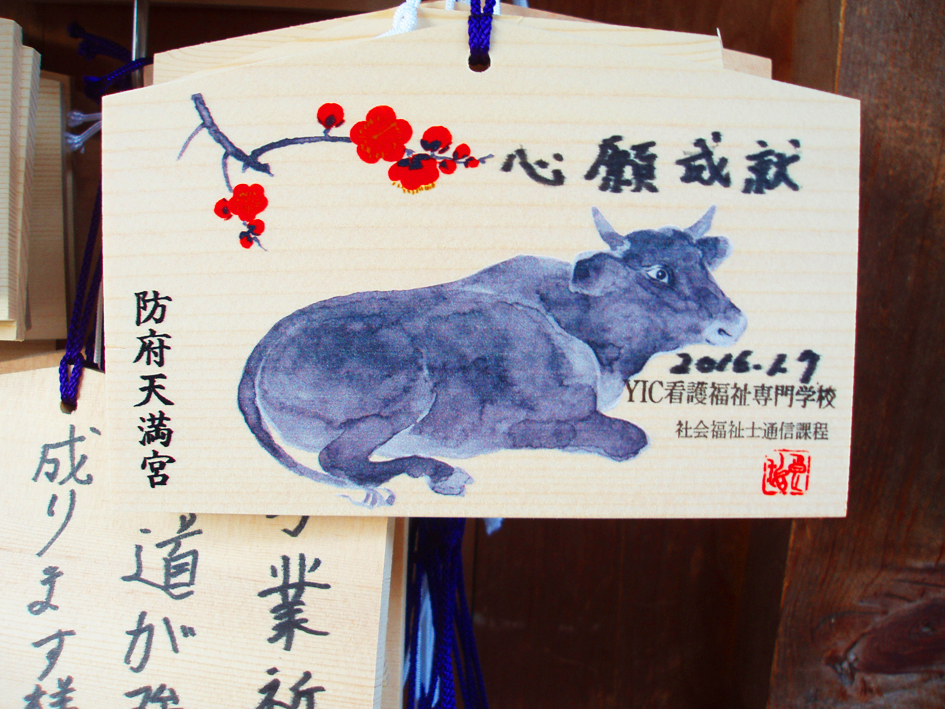 心願成就
防府天満宮
2016.1.7
YIC看護福祉専門学校
社会福祉士通信課程
業祈
道が強
成ります様